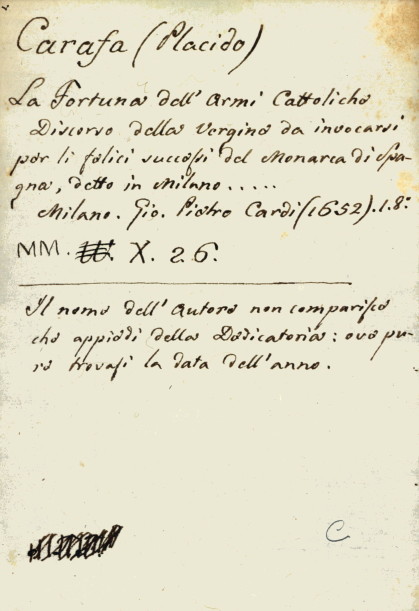 Carafa (Placido)
La Fortuna dell' Armi Cattoliche
Discorso della Vergine da invocarsi
per li felici successi del Monarca di Spa-
gna, detto in Milano.....
Milano. Gio. Pietro Cardi (1652). 1.8:
MM. X. 26.
Il nome dell' Autore non comparisce
che appiedi della Dedicatoria: ove pu-
re trovasi la data dell' anno.
C